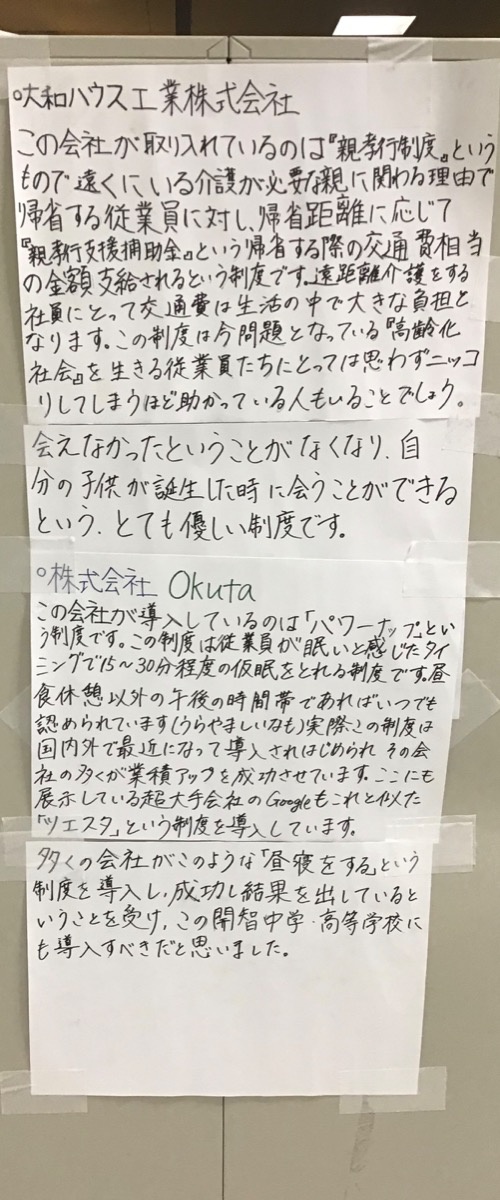 ○大和ハウス工業株式会社
この会社が取り入れているのは『親孝行制度』という
もので遠くにいる介護が必要な親に関わる理由で
帰省する従業員に対し、帰省距離に応じて
『親孝行支援補助金』という帰省する際の交通費相当
の金額支給されるという制度です。遠距離介護をする
社員にとって交通費は生活の中で大きな負担と
なります。この制度は今問題となっている『高齢化
社会』を生きる従業員たちにとっては思わずニッコ
リしてしまうほど助かっている人もいることでしょう。
会えなかったということがなくなり、自
分の子供が誕生した時に会うことができる
という、とても優しい制度です。
○株式会社 Okuta
この会社が導入しているのは「パワーナップ」とい
う制度です。この制度は従業員が眠いと感じたタイ
ミングで15～30分程度の仮眠をとれる制度です。昼
食休憩以外の午後の時間帯であればいつでも
認められています(うらやましいなも)実際この制度は
国内外で最近になって導入されはじめられ その会
社の多くが業積アップを成功させています。ここにも
展示している超大手会社のGoogleもこれと似た
「ツエスタ」という制度を導入しています。
多くの会社がこのような「昼寝をする」という
制度を導入し、成功し結果を出していると
いうことを受け、この開智中学・高等学校に
も導入すべきだと思いました。